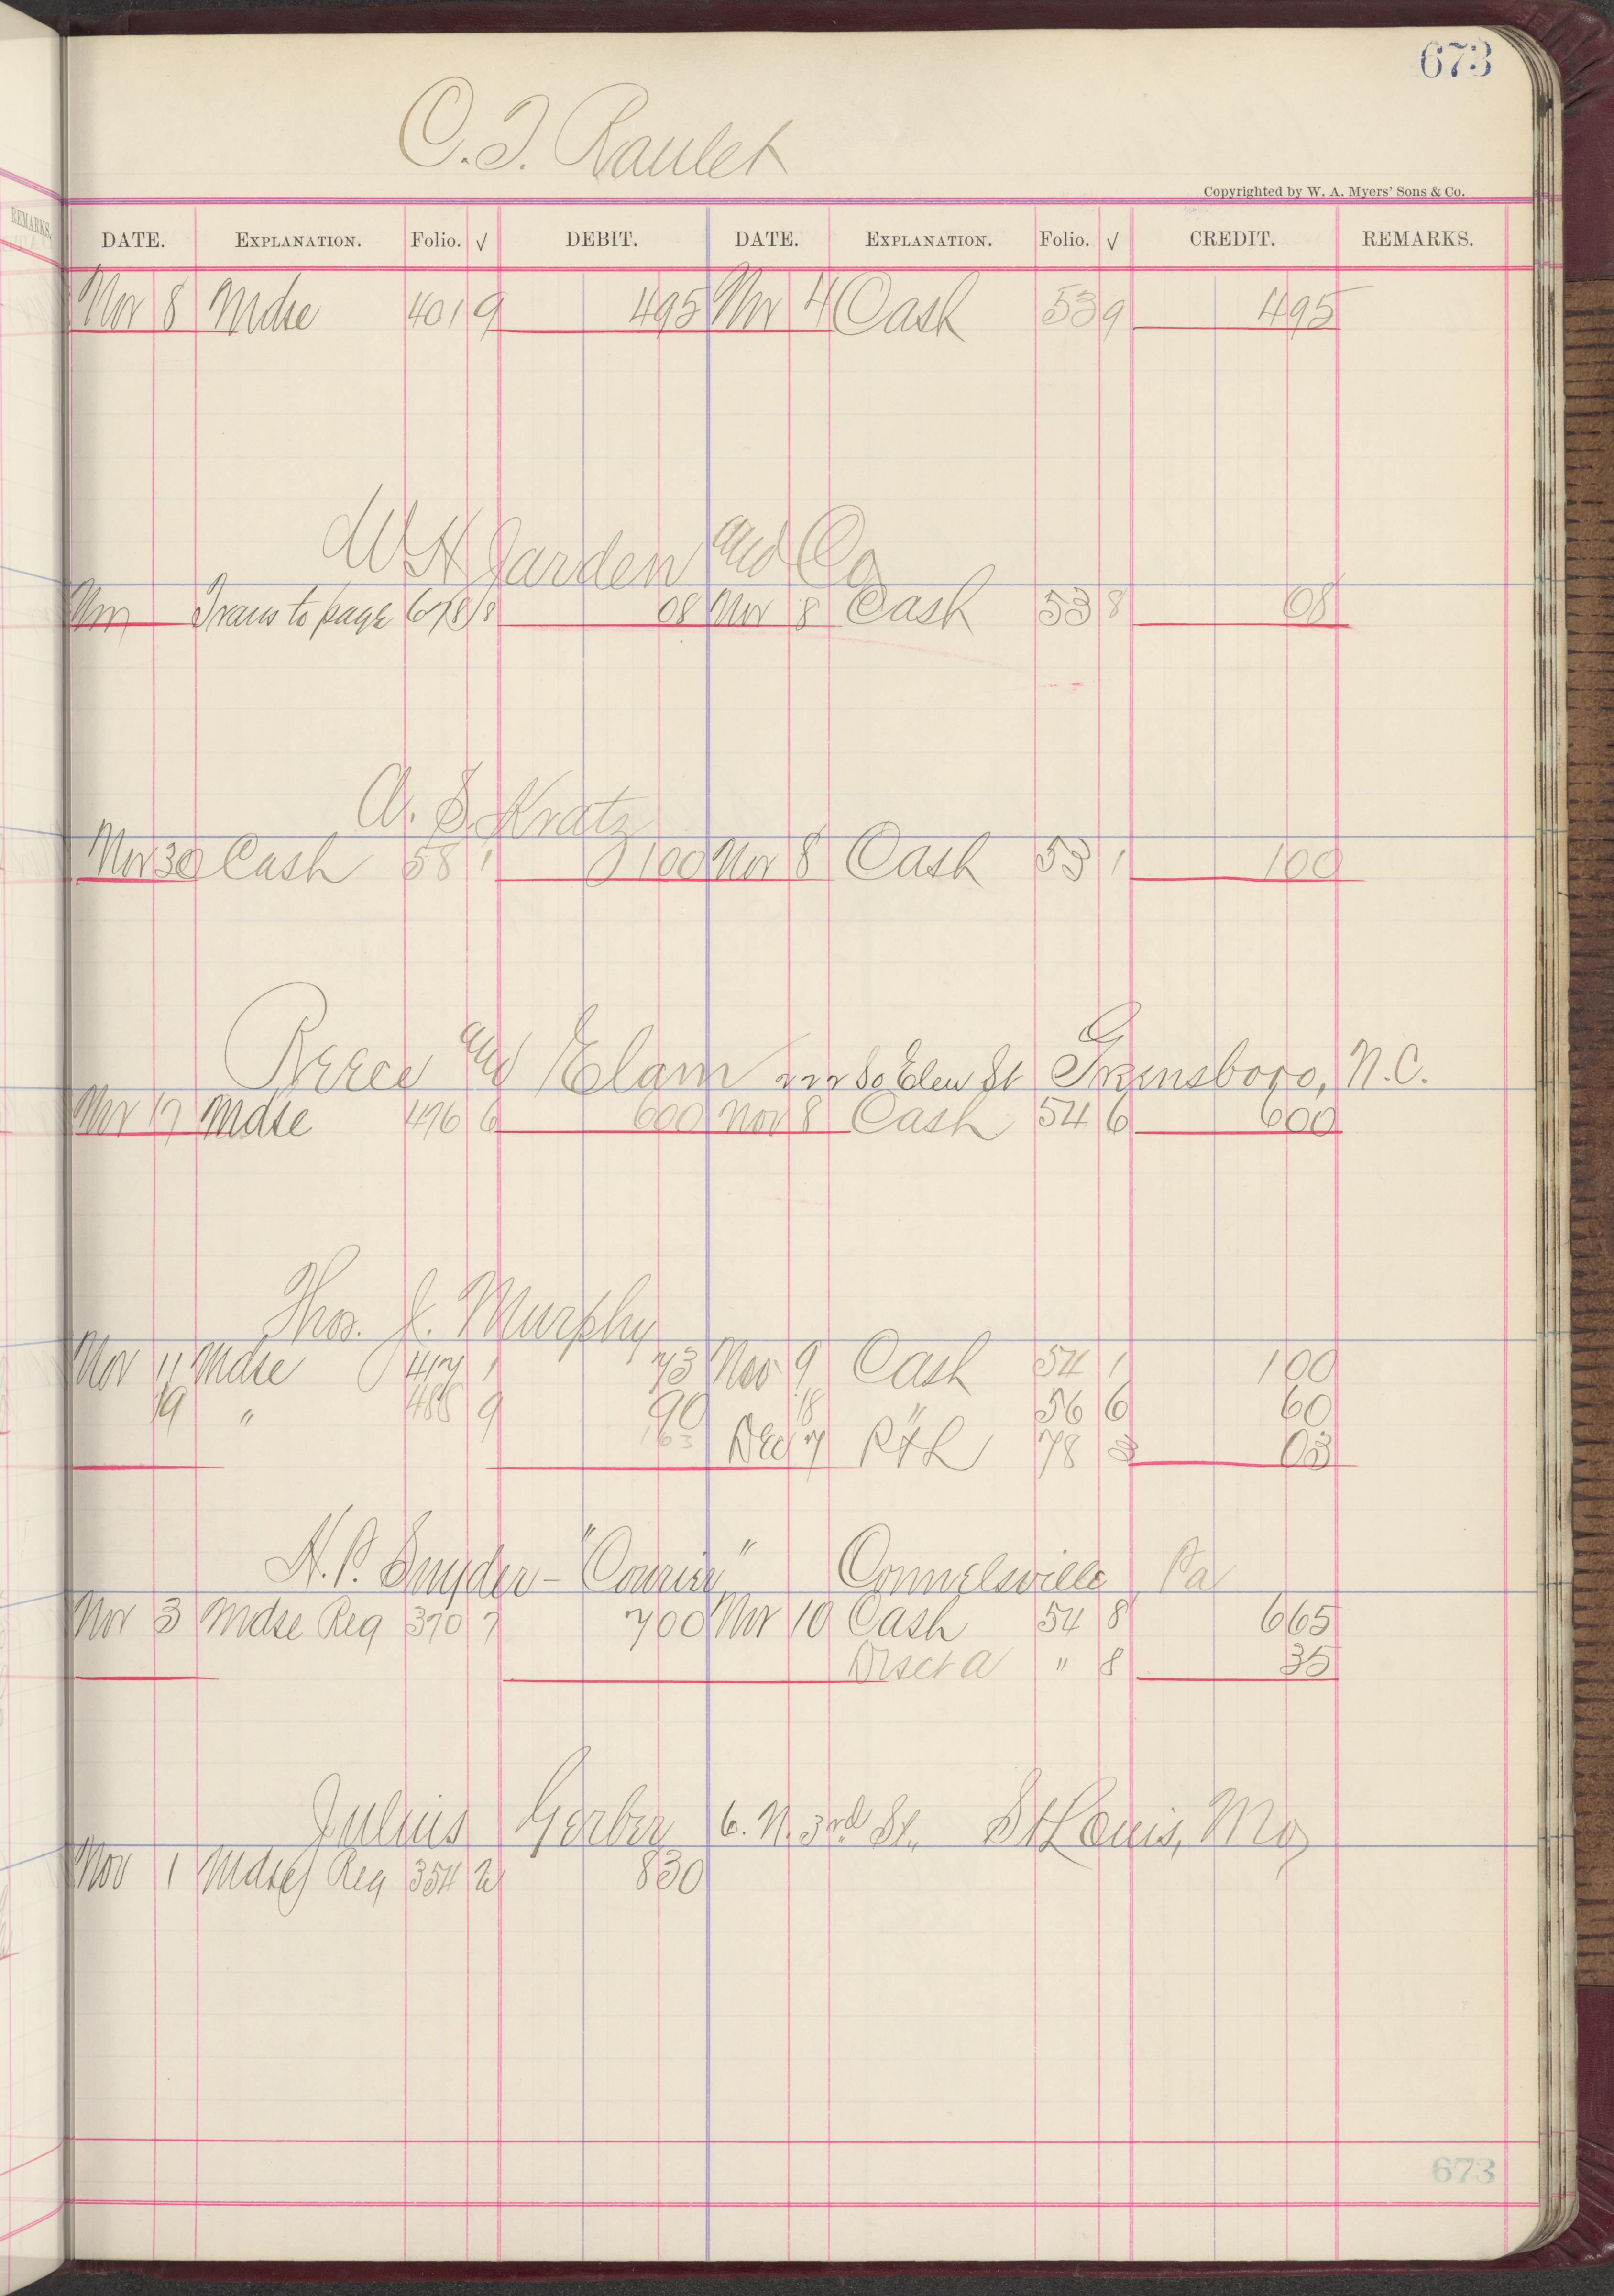 673
C. T. Raulet
Copyrighted by W. A. Myers' Sons & Co.
REMARKS.
DATE. EXPLANATION. Folio. √ DEBIT. DATE. EXPLANATION. Folio. √ CREDIT. REMARKS.
Nov 8 Mdse 401 9 495 Nov 4 Cash 53 9 495
W H Jarden and Co
Nov Trans to page 678 8 08 Nov 8 Cash 53 8 08
A. S. Kratz
Nov 30 Cash 58 1 100 Nov 8 Cash 53 1 100
Reece and Elam So Elm St Greensboro, N.C.
Nov 17 Mdse 476 6 600 Nov 8 Cash 54 6 600
Thos. J. Murphy
Nov 11 Mdse 417 1 73 Nov 9 Cash 54 1 100
19 " 488 9 90 18 " 56 6 60
163 Dec 7 P & L 78 3 03
H. P. Snyder - "Courier" Connelsville Pa
Nov 3 Mdse Reg 370 7 700 Nov 10 Cash 54 8 665
Disct a " 8 35
Julius Gerber 6. N. 3rd St., St Louis, Mo
Nov 1 Mdse Reg 354 2 830
673